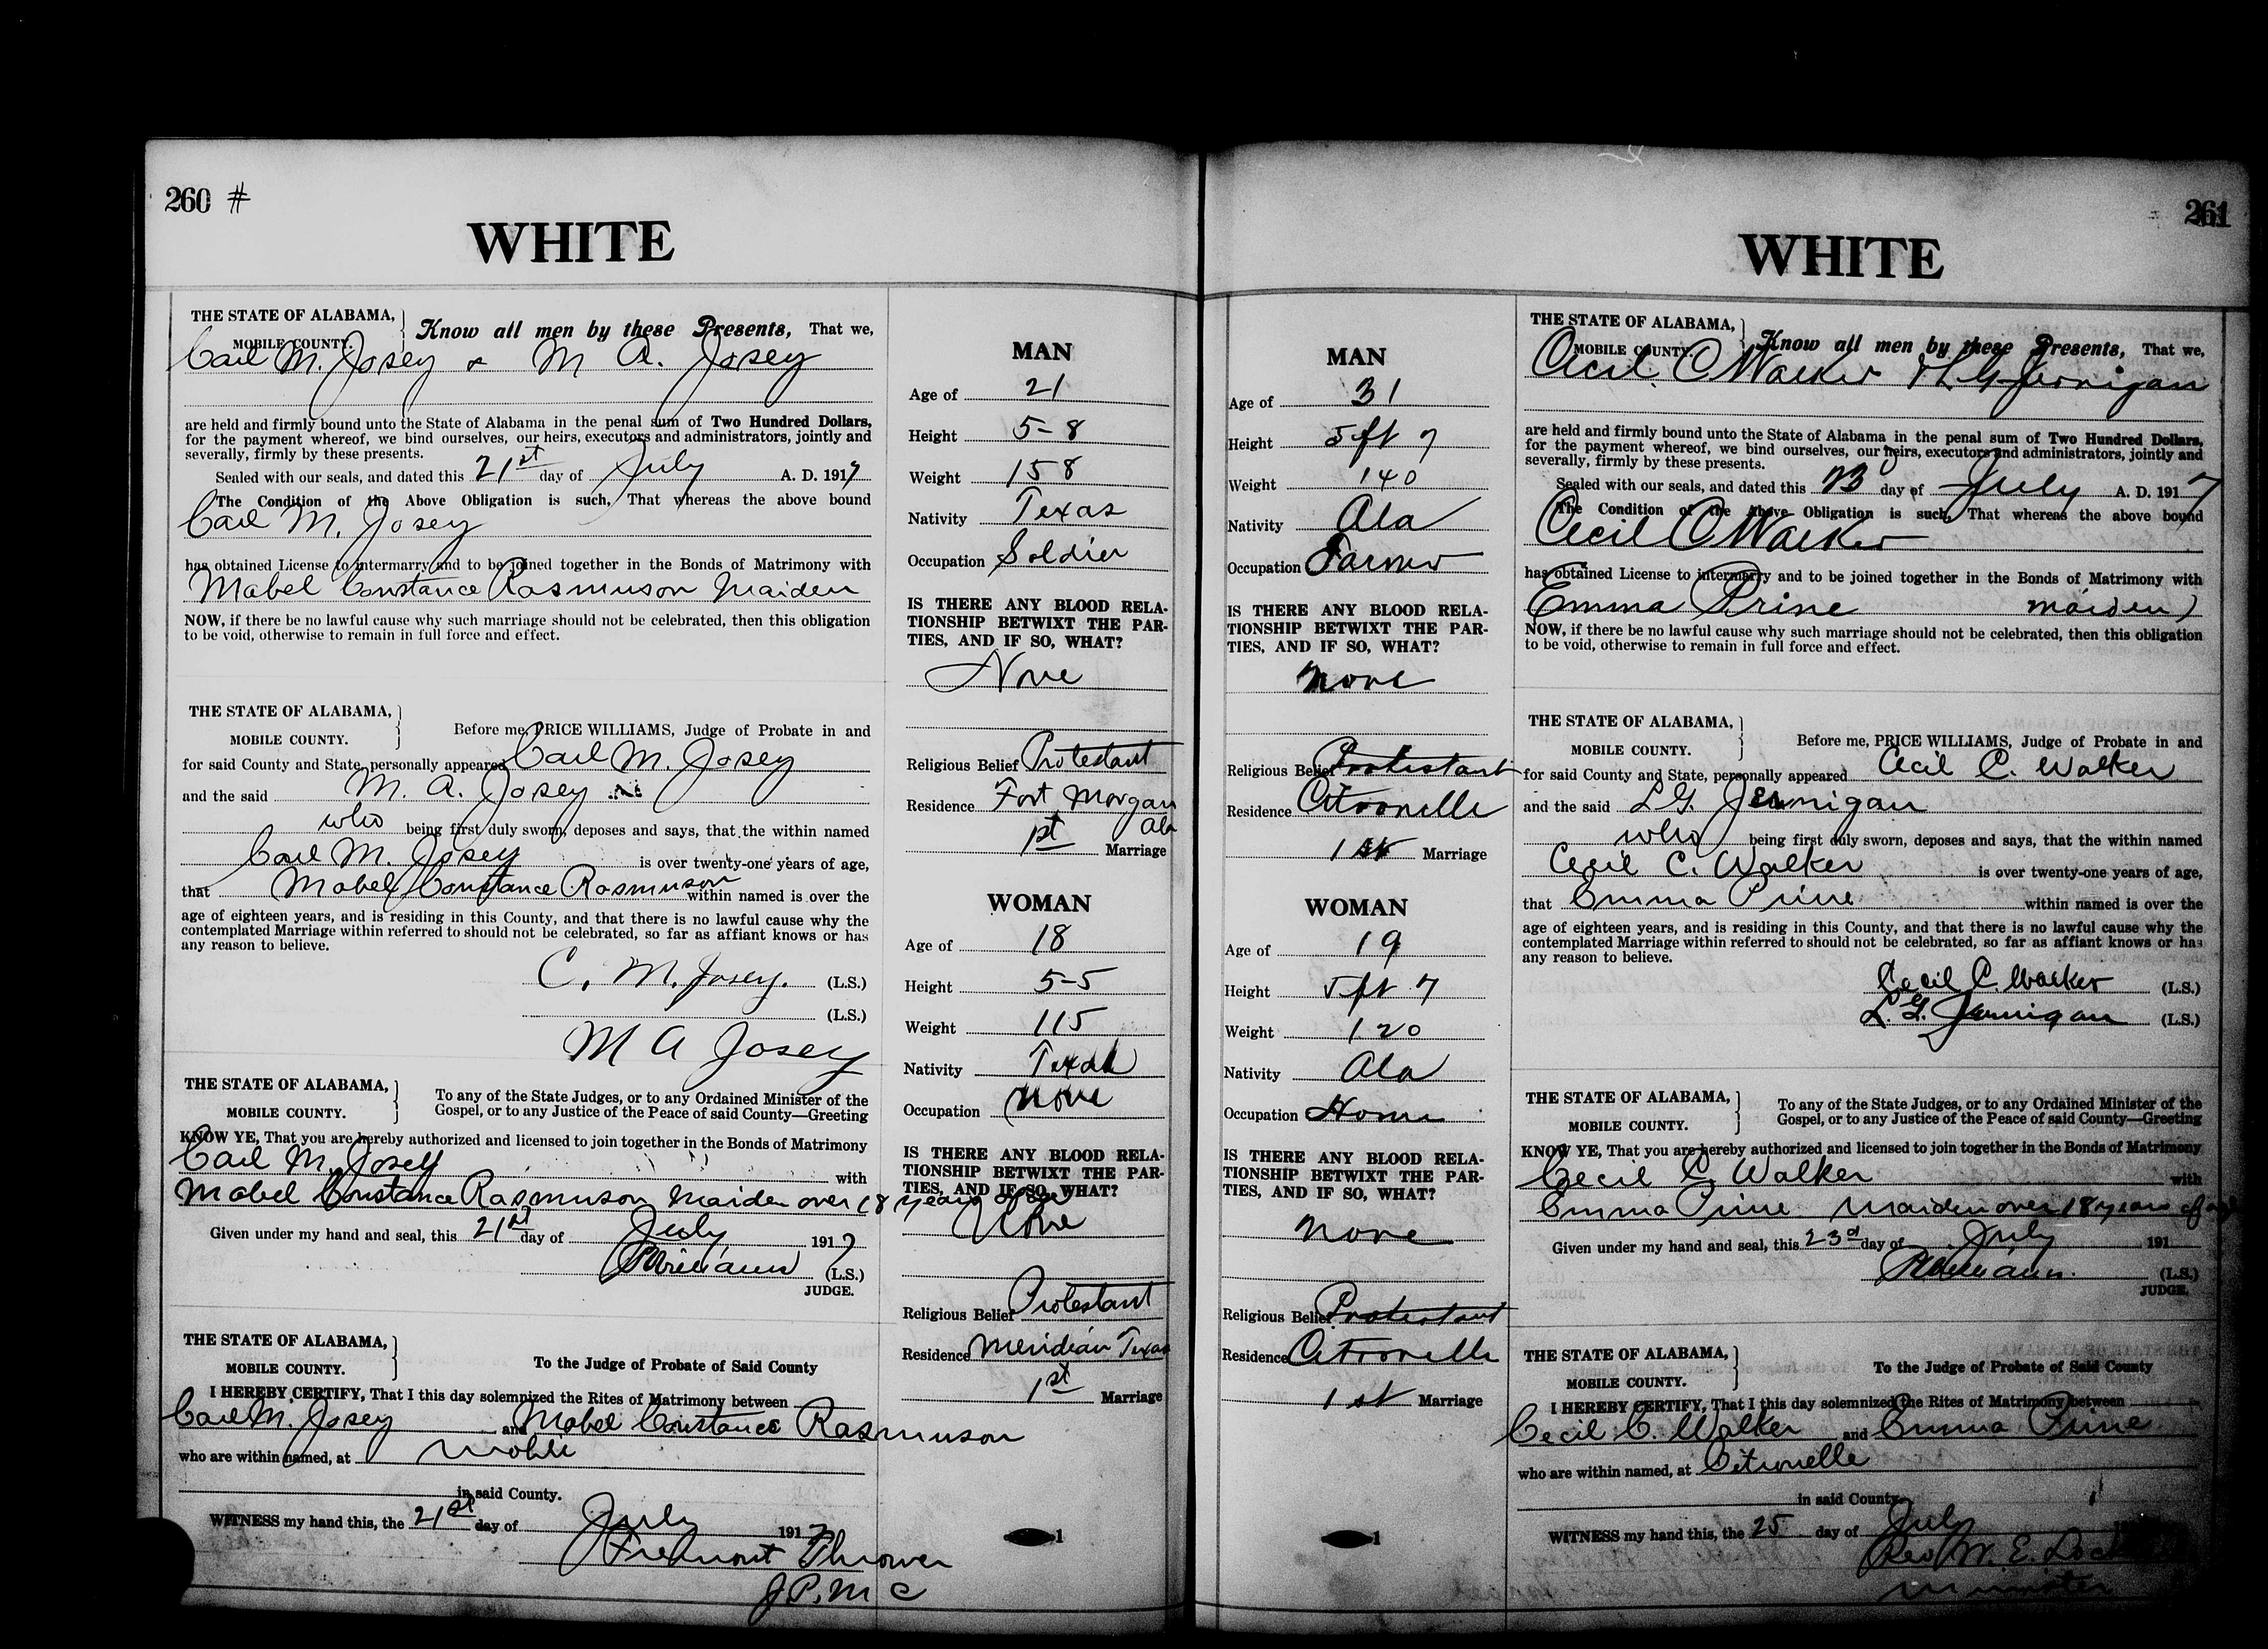 260 #
WHITE
THE STATE OF ALABAMA,
MOBILE COUNTY.
Know all men by these Presents, That we,
Carl M. Josey & M A. Josey
are held and firmly bound unto the State of Alabama in the penal sum of Two Hundred Dollars,
for the payment whereof, we bind ourselves, our heirs, executors and administrators, jointly and
severally, firmly by these presents.
Sealed with our seals, and dated this 21st day of July A. D. 1917
The Condition of the Above Obligation is such, That whereas the above bound
Carl M. Josey
has obtained License to intermarry and to be joined together in the Bonds of Matrimony with
Mabel Constance Rasmuson Maiden
NOW, if there be no lawful cause why such marriage should not be celebrated, then this obligation
to be void, otherwise to remain in full force and effect.
THE STATE OF ALABAMA,
MOBILE COUNTY.
Before me, PRICE WILLIAMS, Judge of Probate in and
for said County and State, personally appeared Carl M. Josey
and the said M. A. Josey
who being first duly sworn, deposes and says, that the within named
Carl M. Josey is over twenty-one years of age,
that Mabel Constance Rasmuson within named is over the
age of eighteen years, and is residing in this County, and that there is no lawful cause why the
contemplated Marriage within referred to should not be celebrated, so far as affiant knows or has
any reason to believe.
C. M. Josey. (L.S.)
(L.S.)
M A Josey
THE STATE OF ALABAMA,
MOBILE COUNTY.
To any of the State Judges, or to any Ordained Minister of the
Gospel, or to any Justice of the Peace of said County—Greeting
KNOW YE, That you are hereby authorized and licensed to join together in the Bonds of Matrimony
Carl M. Josey with
Mabel Constance Rasmuson Maiden over 18 years of age
Given under my hand and seal, this 21st day of July 1917
PWilliams (L.S.)
JUDGE.
THE STATE OF ALABAMA,
MOBILE COUNTY.
To the Judge of Probate of Said County
I HEREBY CERTIFY, That I this day solemnized the Rites of Matrimony between
Carl M. Josey and Mabel Constance Rasmuson
who are within named, at Mobile
in said County.
WITNESS my hand this, the 21st day of July 1917
Fremont Thrower
J.P. M C
MAN
Age of 21
Height 5-8
Weight 158
Nativity Texas
Occupation Soldier
IS THERE ANY BLOOD RELA-
TIONSHIP BETWIXT THE PAR-
TIES, AND IF SO, WHAT?
None
Religious Belief Protestant
Residence Fort Morgan
Ala
1st Marriage
WOMAN
Age of 18
Height 5-5
Weight 115
Nativity Texas
Occupation None
IS THERE ANY BLOOD RELA-
TIONSHIP BETWIXT THE PAR-
TIES, AND IF SO, WHAT?
None
Religious Belief Protestant
Residence Meridian Texas
1st Marriage
1
261
WHITE
MAN
Age of 31
Height 5 ft 7
Weight 140
Nativity Ala
Occupation Farmer
IS THERE ANY BLOOD RELA-
TIONSHIP BETWIXT THE PAR-
TIES, AND IF SO, WHAT?
none
Religious Belief Protestant
Residence Citronelle
1st Marriage
WOMAN
Age of 19
Height 5 ft 7
Weight 120
Nativity Ala
Occupation Home
IS THERE ANY BLOOD RELA-
TIONSHIP BETWIXT THE PAR-
TIES, AND IF SO, WHAT?
none
Religious Belief Protestant
Residence Citronelle
1st Marriage
1
THE STATE OF ALABAMA,
MOBILE COUNTY.
Know all men by these Presents, That we,
Cecil C Walker & L G Jernigan
are held and firmly bound unto the State of Alabama in the penal sum of Two Hundred Dollars,
for the payment whereof, we bind ourselves, our heirs, executors and administrators, jointly and
severally, firmly by these presents.
Sealed with our seals, and dated this 23 day of July A. D. 1917
The Condition of the Above Obligation is such, That whereas the above bound
Cecil C Walker
has obtained License to intermarry and to be joined together in the Bonds of Matrimony with
Emma Prine maiden
NOW, if there be no lawful cause why such marriage should not be celebrated, then this obligation
to be void, otherwise to remain in full force and effect.
THE STATE OF ALABAMA,
MOBILE COUNTY.
Before me, PRICE WILLIAMS, Judge of Probate in and
for said County and State, personally appeared Cecil C. Walker
and the said L G. Jernigan
who being first duly sworn, deposes and says, that the within named
Cecil C. Walker is over twenty-one years of age,
that Emma Prine within named is over the
age of eighteen years, and is residing in this County, and that there is no lawful cause why the
contemplated Marriage within referred to should not be celebrated, so far as affiant knows or has
any reason to believe.
Cecil C. Walker (L.S.)
L. G. Jernigan (L.S.)
THE STATE OF ALABAMA,
MOBILE COUNTY.
To any of the State Judges, or to any Ordained Minister of the
Gospel, or to any Justice of the Peace of said County—Greeting
KNOW YE, That you are hereby authorized and licensed to join together in the Bonds of Matrimony
Cecil C. Walker with
Emma Prine Maiden over 18 years of age
Given under my hand and seal, this 23d day of July 191
PWilliams. (L.S.)
JUDGE.
THE STATE OF ALABAMA,
MOBILE COUNTY.
To the Judge of Probate of Said County
I HEREBY CERTIFY, That I this day solemnized the Rites of Matrimony between
Cecil C. Walker and Emma Prine
who are within named, at Citronelle
in said County.
WITNESS my hand this, the 25 day of July
Rev W. E.
Minister